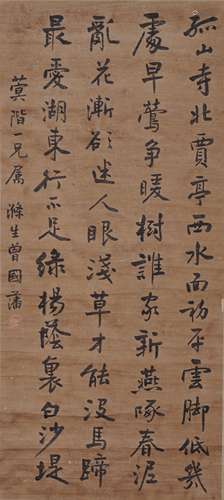 孤山寺北賈亭西水面初平雲脚低幾
處早鶯爭暖樹誰家新燕啄春泥
亂花漸欲迷人眼淺草才能沒馬蹄
最愛湖東行不足綠楊蔭裏白沙堤
蓂階一兄屬 滌生曾國藩